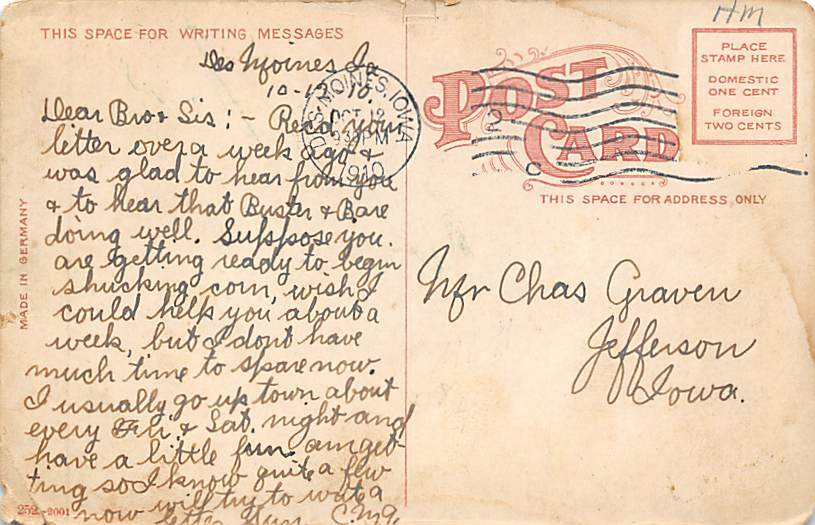 THIS SPACE FOR WRITING MESSAGES
Des Moines Ia
10-12-10.
Dear Bro & Sis: - Recd. your
letter over a week ago &
was glad to hear from you
& to hear that Buster & B are
doing well. Suppose you
are getting ready to begin
shucking corn, wish I
could help you about a
week, but I dont have
much time to spare now.
I usually go up town about
every Fri. & Sat. night and
have a little fun. am get-
ting so I know quite a few
now will try to write a
letter Sun. C.M.G.
MADE IN GERMANY
252-2001
DES MOINES, IOWA
OCT 12
PM
1910
HM
POST CARD
PLACE
STAMP HERE
DOMESTIC
ONE CENT
FOREIGN
TWO CENTS
THIS SPACE FOR ADDRESS ONLY
Mr Chas Graven
Jefferson
Iowa.